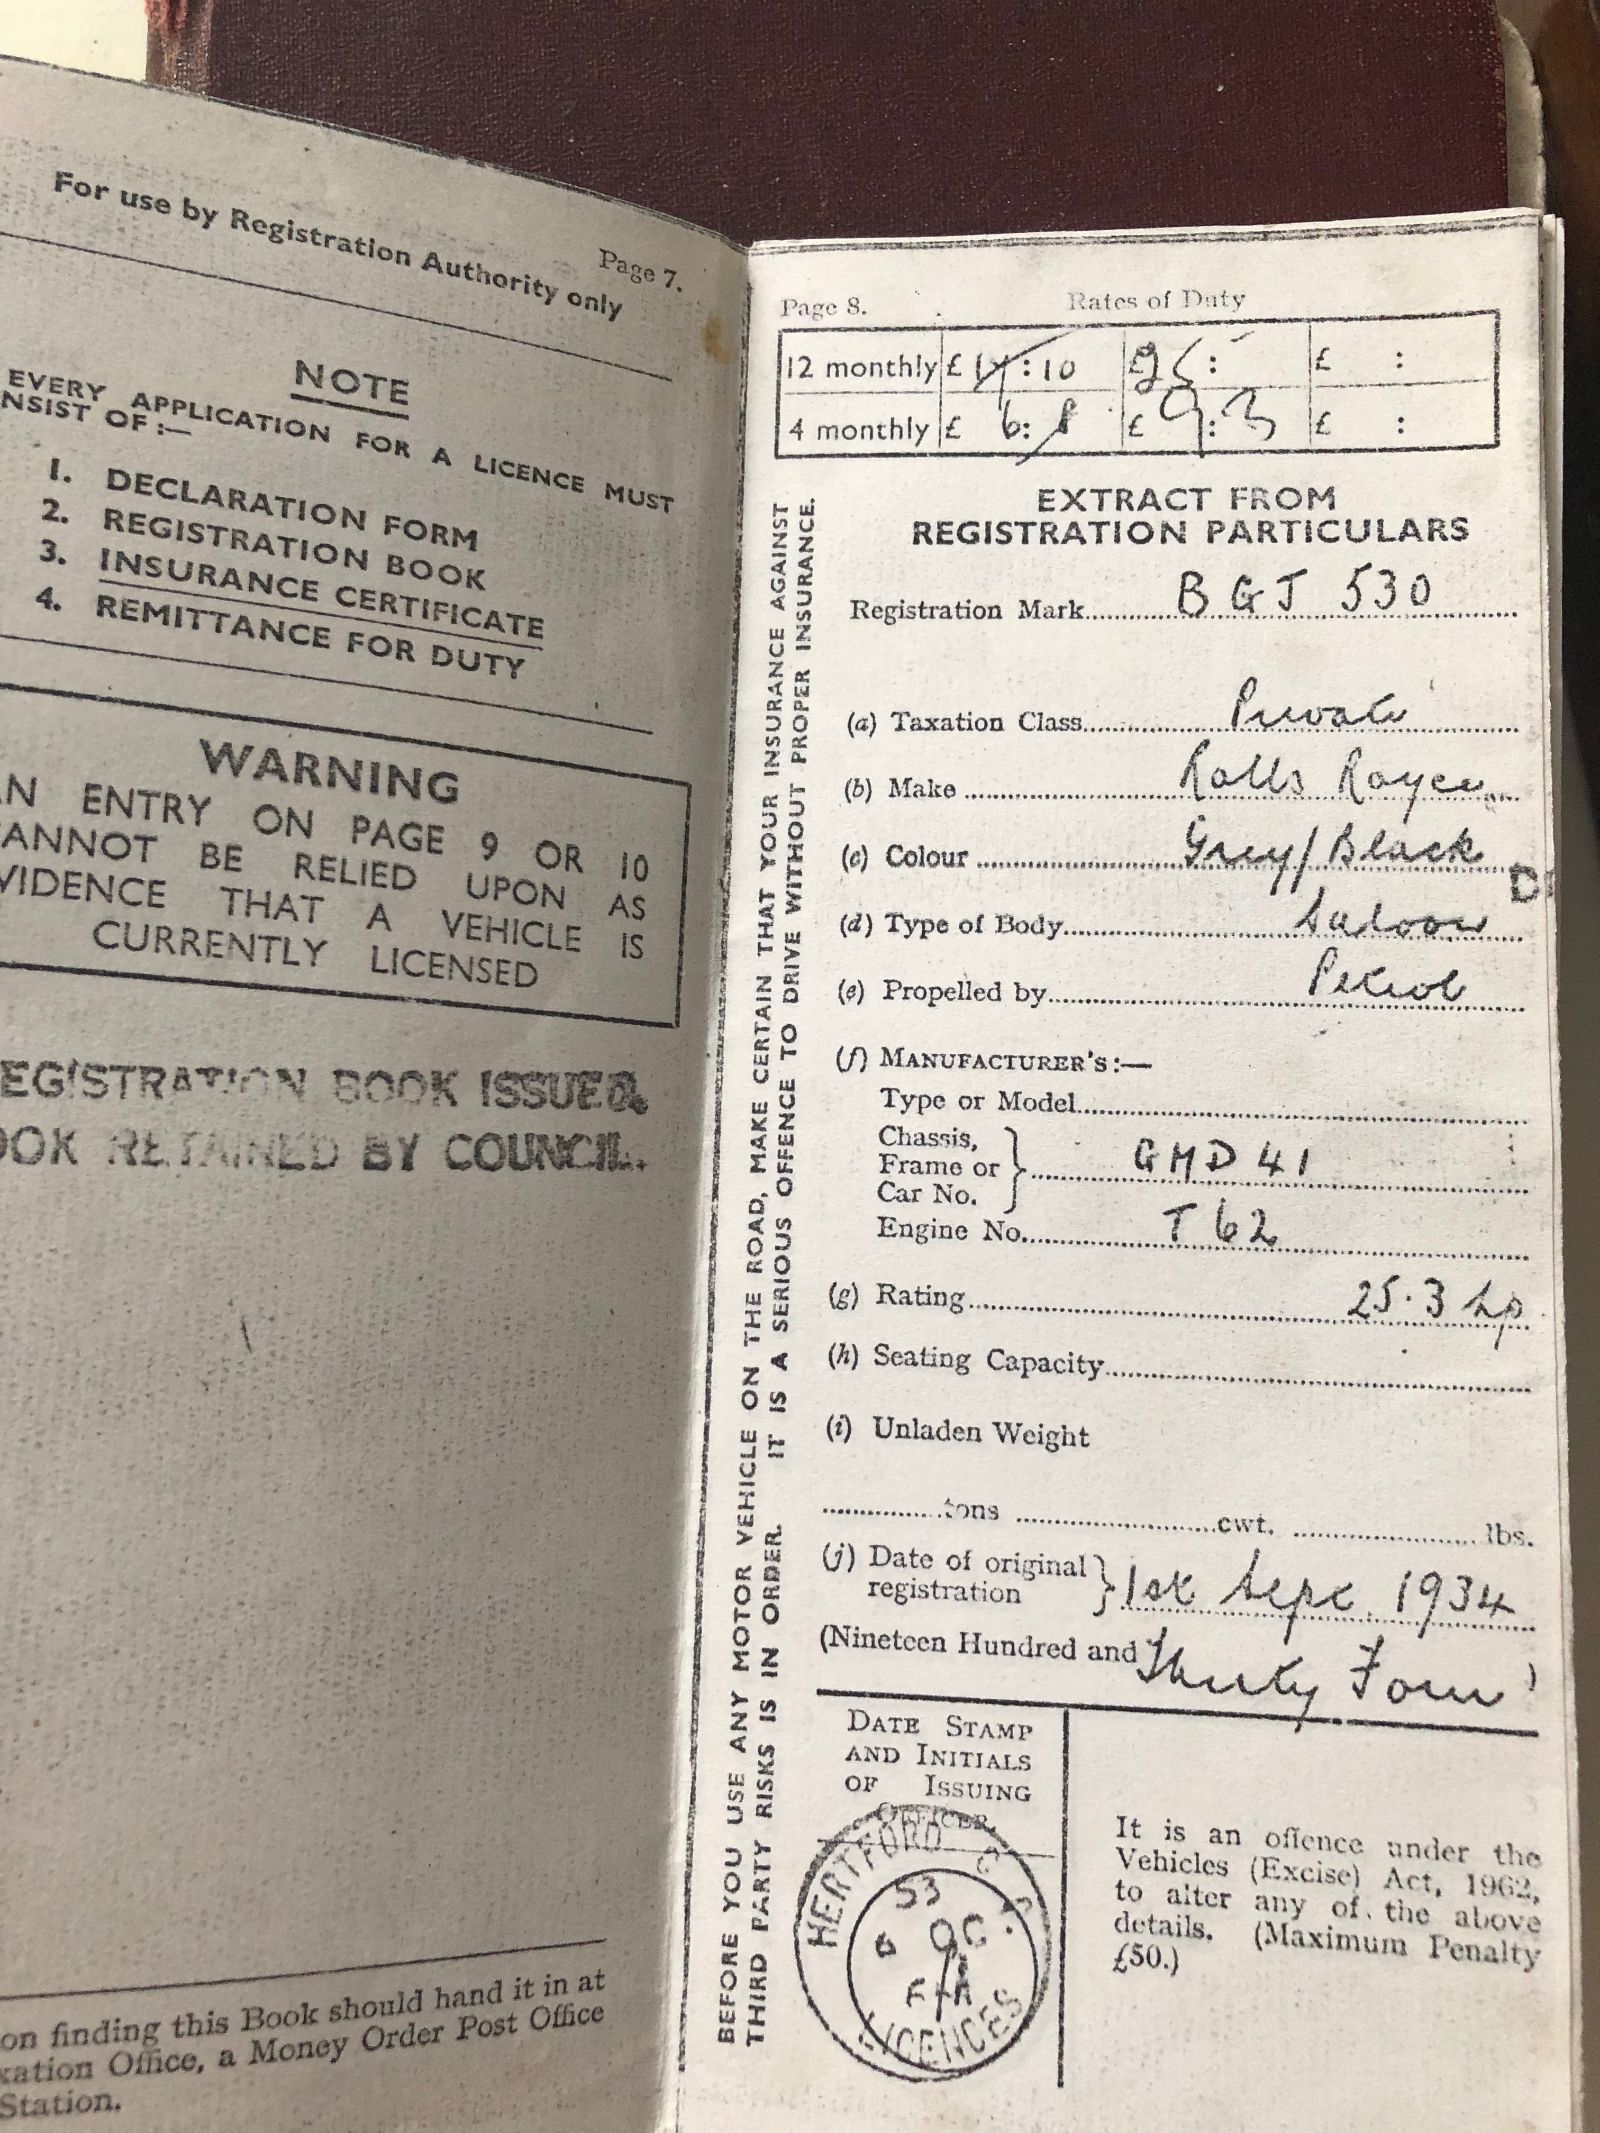 Page 7.
For use by Registration Authority only
NOTE
EVERY APPLICATION FOR A LICENCE MUST
NSIST OF :—
1. DECLARATION FORM
2. REGISTRATION BOOK
3. INSURANCE CERTIFICATE
4. REMITTANCE FOR DUTY
WARNING
AN ENTRY ON PAGE 9 OR 10
CANNOT BE RELIED UPON AS
VIDENCE THAT A VEHICLE IS
CURRENTLY LICENSED
EGISTRATION BOOK ISSUED.
OOK RETAINED BY COUNCIL.
on finding this Book should hand it in at
xation Office, a Money Order Post Office
Station.
BEFORE YOU USE ANY MOTOR VEHICLE ON THE ROAD, MAKE CERTAIN THAT YOUR INSURANCE AGAINST
THIRD PARTY RISKS IS IN ORDER. IT IS A SERIOUS OFFENCE TO DRIVE WITHOUT PROPER INSURANCE.
Page 8. Rates of Duty
12 monthly £ : 10 £ 25 : - £ :
4 monthly £ 6 : 8 £ 9 : 3 £ :
EXTRACT FROM
REGISTRATION PARTICULARS
Registration Mark BGJ 530
(a) Taxation Class Private
(b) Make Rolls Royce
(c) Colour Grey/Black
(d) Type of Body Saloon
(e) Propelled by Petrol
(f) MANUFACTURER'S:—
Type or Model
Chassis,
Frame or } GMD 41
Car No.
Engine No. T62
(g) Rating 25.3 hp
(h) Seating Capacity
(i) Unladen Weight
tons cwt. lbs.
(j) Date of original
registration } 1st Sept 1934
(Nineteen Hundred and Thirty Four)
DATE STAMP
AND INITIALS
OF ISSUING
OFFICER.
HERTFORD C.C.
53
OC
LICENCES
It is an offence under the
Vehicles (Excise) Act, 1962,
to alter any of the above
details. (Maximum Penalty
£50.)